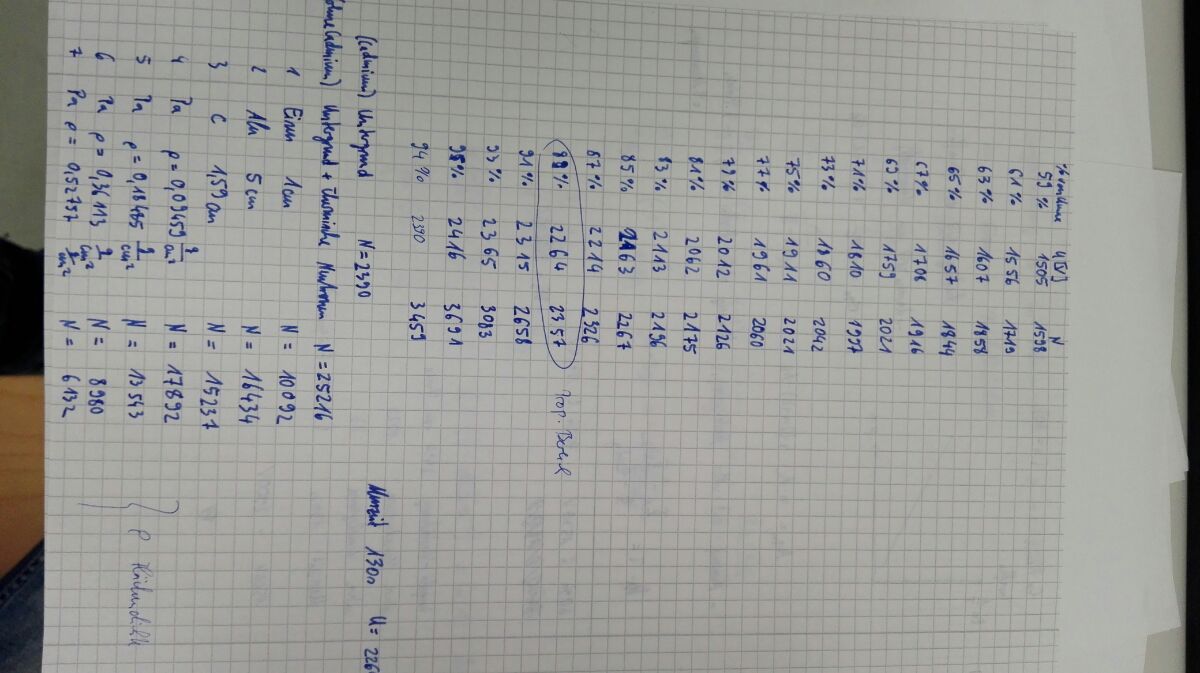 % von Umax U [V] N
59 % 1505 1598
61 % 1556 1719
63 % 1607 1858
65 % 1657 1844
67 % 1708 1916
69 % 1759 2021
71 % 1810 1997
73 % 1860 2042
75 % 1911 2021
77 % 1961 2060
79 % 2012 2126
81 % 2062 2175
83 % 2113 2196
85 % 2163 2267
87 % 2214 2326
89 % 2264 2357 Prop. Bereich
91 % 2315 2658
93 % 2365 3083
95 % 2416 3691
94 % 2390 3459
Messzeit 130s U= 226
(Cadmium) Untergrund N = 2390
(ohne Cadmium) Untergrund + thermische Neutronen N = 25216
1 Eisen 1cm N = 10092
2 Alu 5 cm N = 16434
3 C 1,59 cm N = 15237
4 Pa ρ = 0,09459 g/cm² N = 17892
5 Pa ρ = 0,18485 g/cm² N = 13543 ρ Flächendichte
6 Pa ρ = 0,36113 g/cm² N = 8980
7 Pa ρ = 0,52757 g/cm² N = 6132